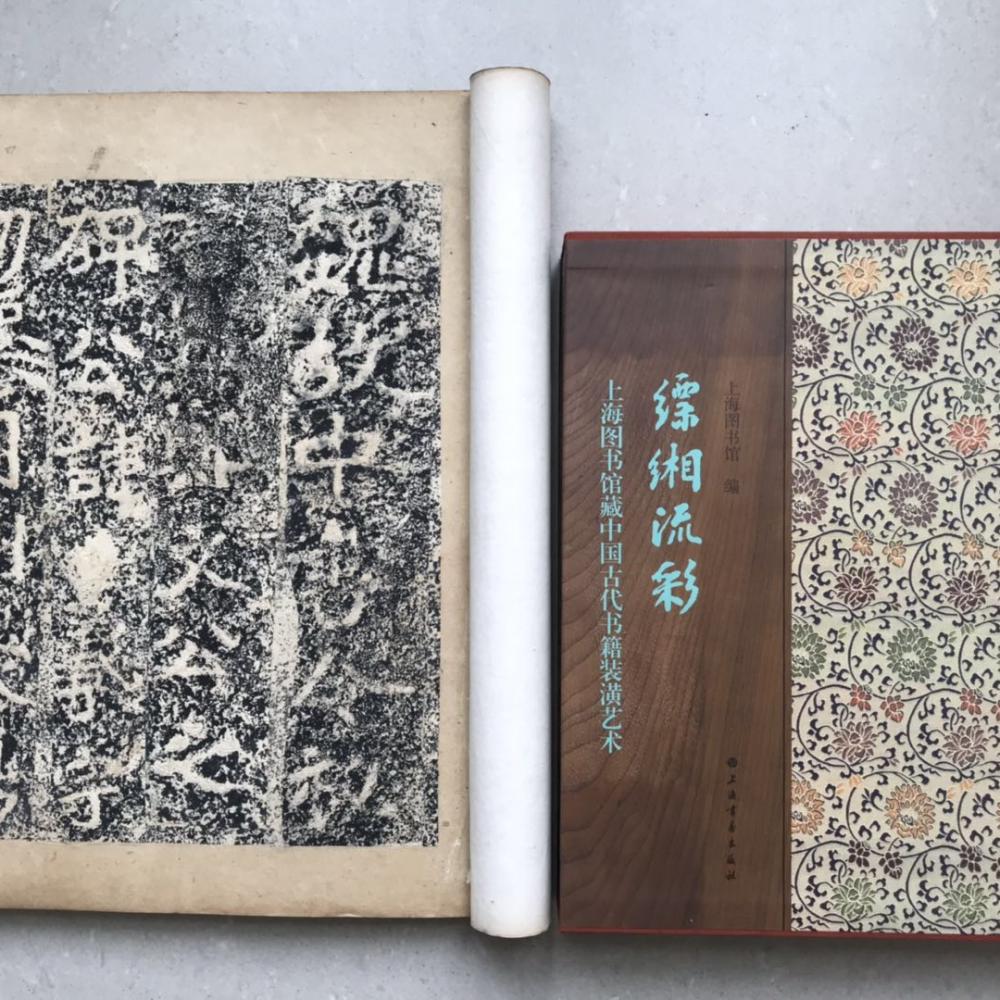 魏故中書令秘
文公之
碑公諱羲字
上海图书馆 编
缥缃流彩
上海图书馆藏中国古代书籍装潢艺术
上海书画出版社